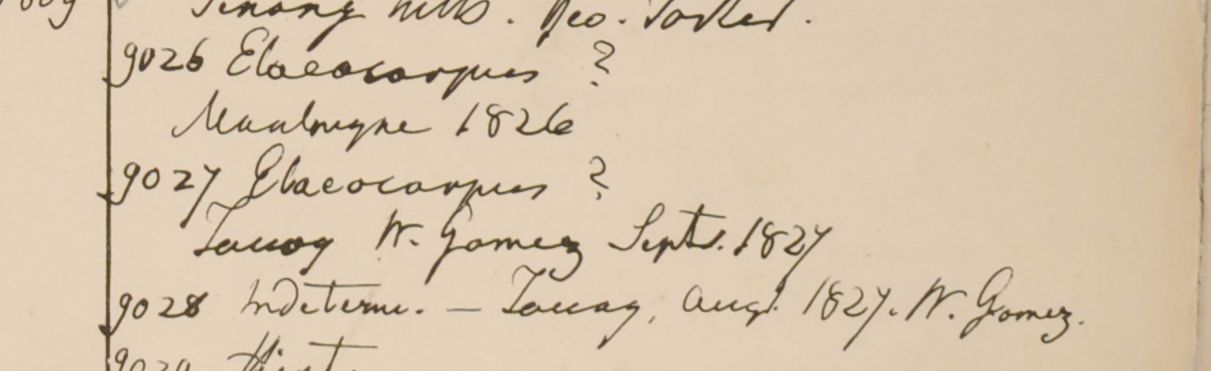 Penang hills. Geo. Porter.
9026 Elaeocarpus ?
Maulmyne 1826
9027 Elaeocarpus ?
Tavoy W. Gomez Septr. 1827
9028 Indeterm. — Tavoy, Augt. 1827. W. Gomez.
9029